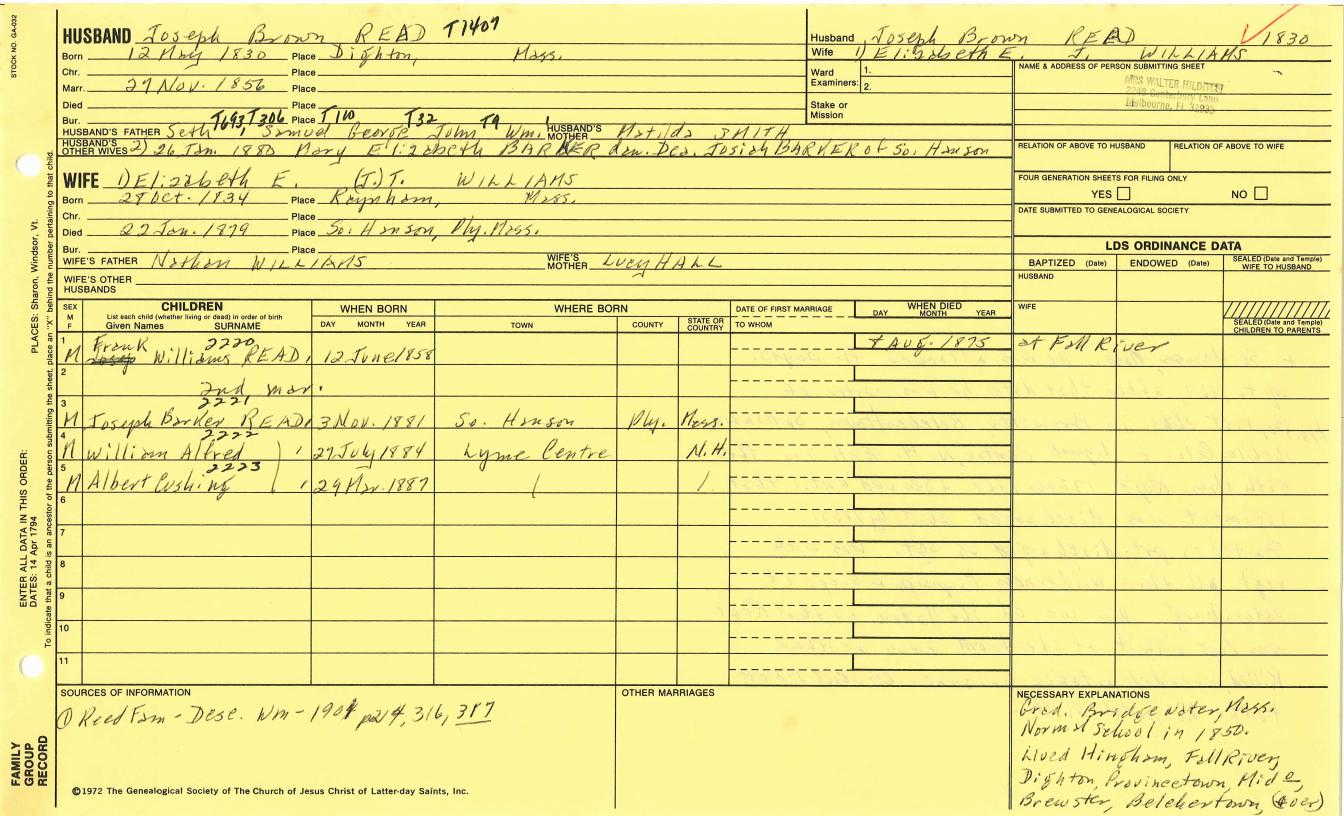 STOCK NO. GA-032
HUSBAND Joseph Brown READ T1407
Born 12 May 1830 Place Dighton, Mass.
Chr. Place
Marr. 27 Nov. 1856 Place
Died Place
Bur. Place
T693 T306 T110 T32 T9
HUSBAND'S FATHER Seth, Samuel George John Wm. HUSBAND'S MOTHER Matilda SMITH
HUSBAND'S OTHER WIVES 2) 26 Jan. 1880 Mary Elizabeth BARKER dau. Dea. Josiah BARKER of So. Hanson
Husband Joseph Brown READ 1830
Wife 1) Elizabeth E. J. WILLIAMS
Ward Examiners: 1.
2.
Stake or Mission
NAME & ADDRESS OF PERSON SUBMITTING SHEET
MRS WALTER
RELATION OF ABOVE TO HUSBAND RELATION OF ABOVE TO WIFE
FOUR GENERATION SHEETS FOR FILING ONLY
YES NO
DATE SUBMITTED TO GENEALOGICAL SOCIETY
WIFE 1) Elizabeth E. (J.) T. WILLIAMS
Born 28 Oct. 1834 Place Raynham, Mass.
Chr. Place
Died 22 Jan. 1879 Place So. Hanson, Ply. Mass.
Bur. Place
WIFE'S FATHER Nathan WILLIAMS WIFE'S MOTHER Lucy HALL
WIFE'S OTHER HUSBANDS
LDS ORDINANCE DATA
BAPTIZED (Date) ENDOWED (Date) SEALED (Date and Temple) WIFE TO HUSBAND
HUSBAND
WIFE
SEALED (Date and Temple) CHILDREN TO PARENTS
SEX M F CHILDREN WHEN BORN WHERE BORN DATE OF FIRST MARRIAGE WHEN DIED
List each child (whether living or dead) in order of birth
Given Names SURNAME DAY MONTH YEAR TOWN COUNTY STATE OR COUNTRY TO WHOM DAY MONTH YEAR
1 Frank 2220
M Williams READ, 12 June 1858 Aug. 1875 at Fall River
2
2nd mar.
3 2221
M Joseph Barker READ 3 Nov. 1881 So. Hanson Ply. Mass.
4 2222
M William Alfred 27 July 1884 Lyme Centre N.H.
5 2223
M Albert Cushing 29 Mar. 1887
6
7
8
9
10
11
SOURCES OF INFORMATION
① Reed Fam - Desc. Wm - 1901 p214, 316, 317
OTHER MARRIAGES
NECESSARY EXPLANATIONS
Grad. Bridgewater, Mass.
Normal School in 1850.
Lived Hingham, Fall River,
Dighton, Provincetown, Mid.
Brewster, Belchertown, (over)
©1972 The Genealogical Society of The Church of Jesus Christ of Latter-day Saints, Inc.
FAMILY GROUP RECORD
ENTER ALL DATA IN THIS ORDER:
DATES: 14 Apr 1794
PLACES: Sharon, Windsor, Vt.
To indicate that a child is an ancestor of the person submitting the sheet, place an "X" behind the number pertaining to that child.